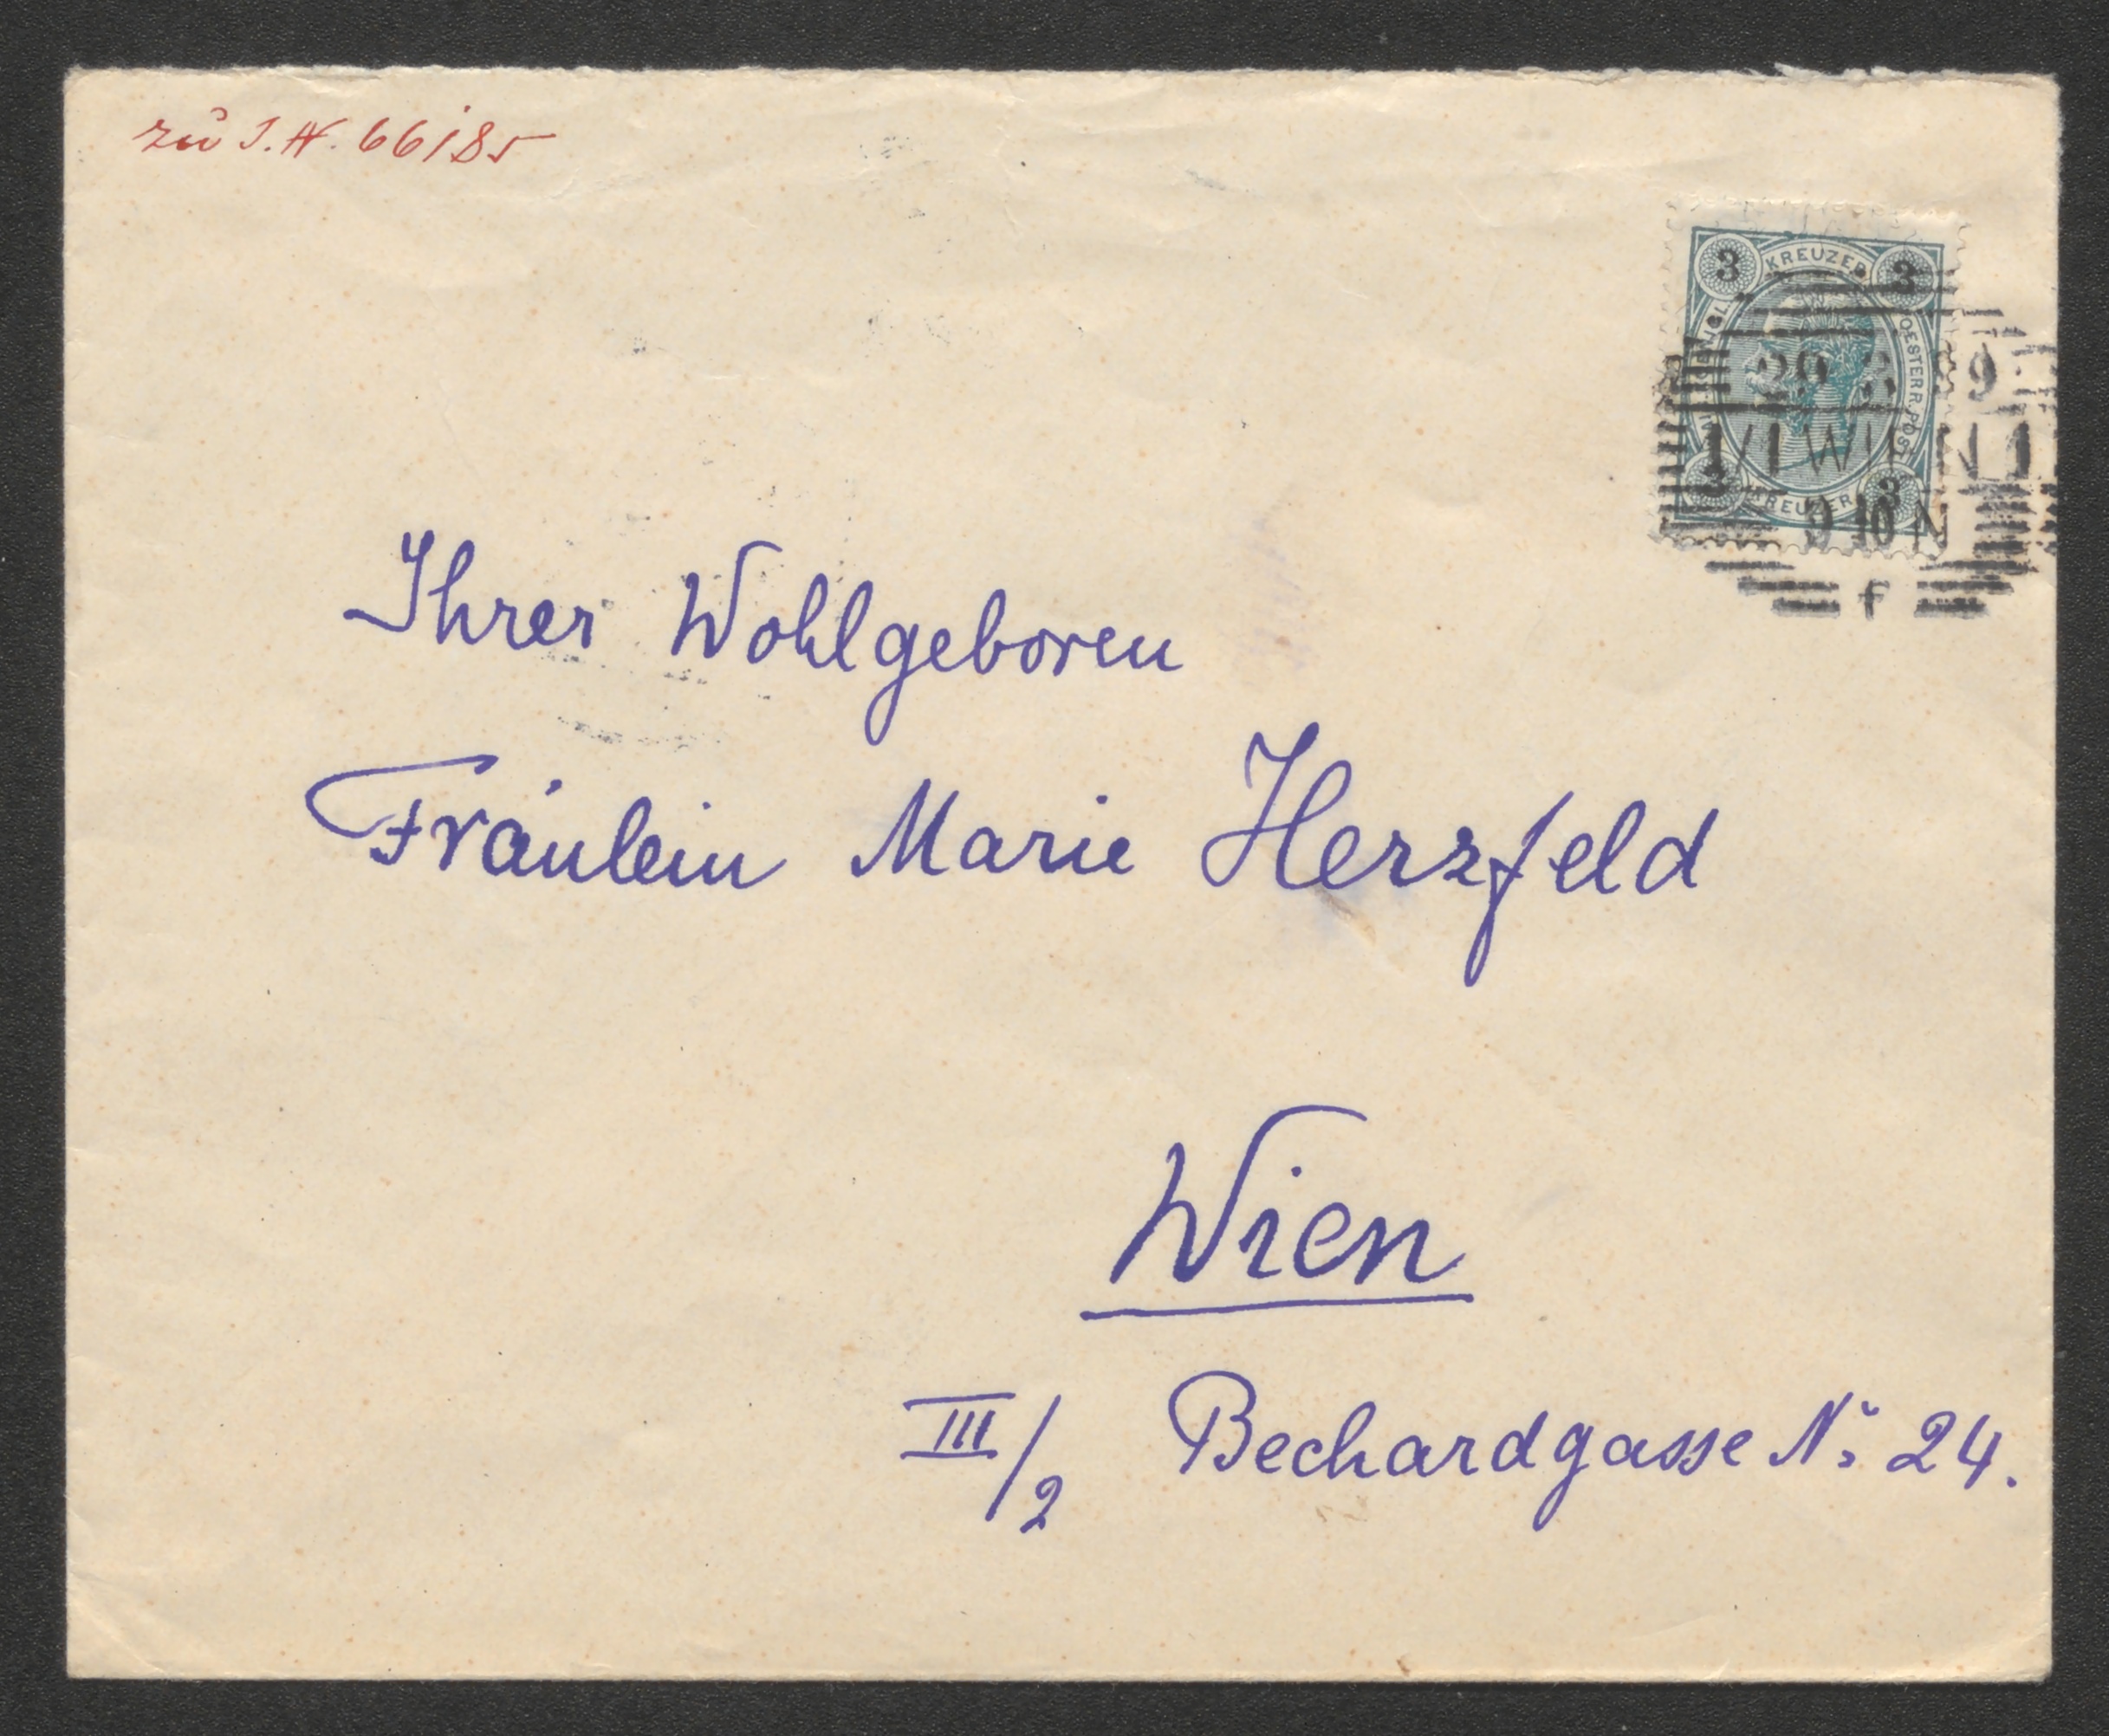 zu I.N. 66185
3 KREUZER 3
OESTERR. POST
KREUZER 3
1/1 WIEN 1
9 10 N
f
Ihrer Wohlgeboren
Fräulein Marie Herzfeld
Wien
III/2 Bechardgasse No 24.